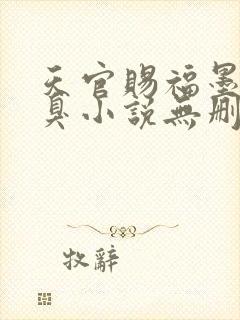 天官賜福墨
臭小說無刪
牧辭